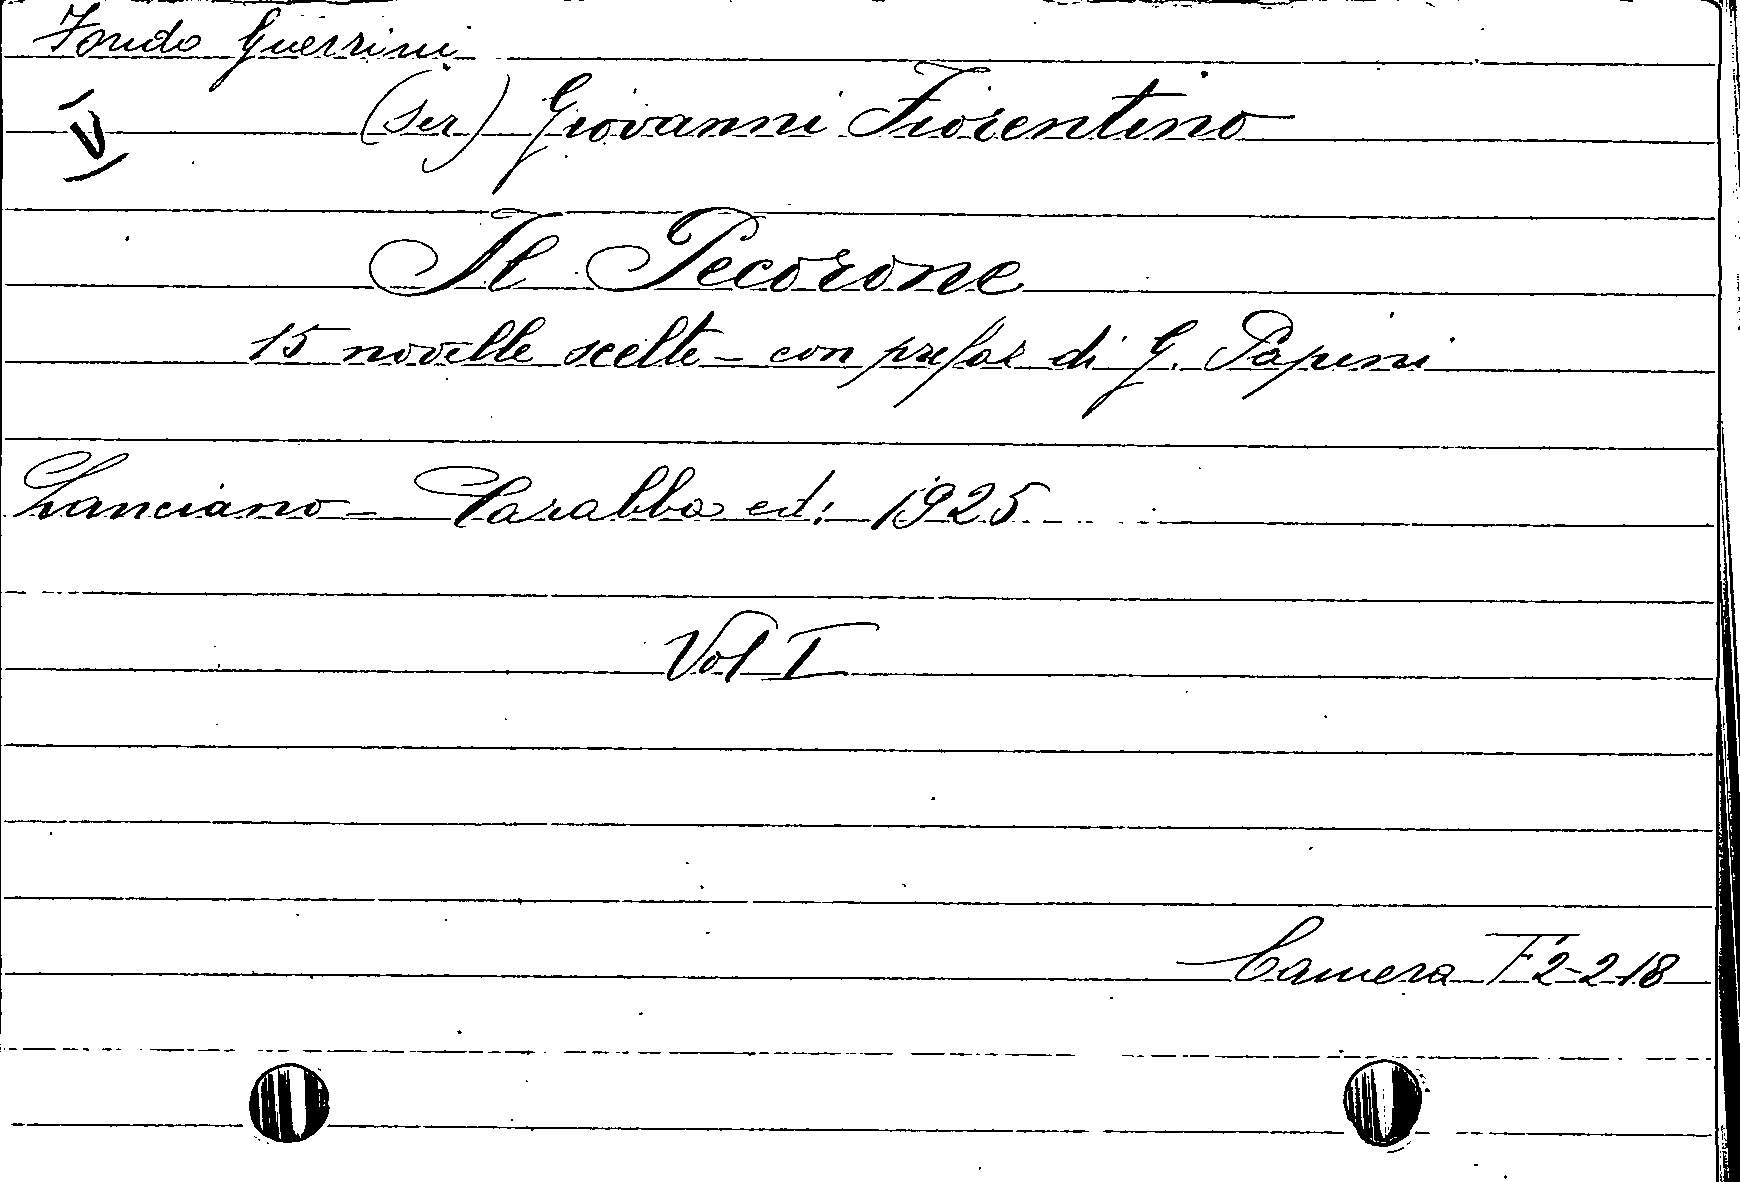 Fondo Guerrini
V
(Ser) Giovanni Fiorentino
Il Pecorone
15 novelle scelte - con prefaz di G. Papini
Lanciano - Carabba ed: 1925
Vol I
Camera F 2-2-18